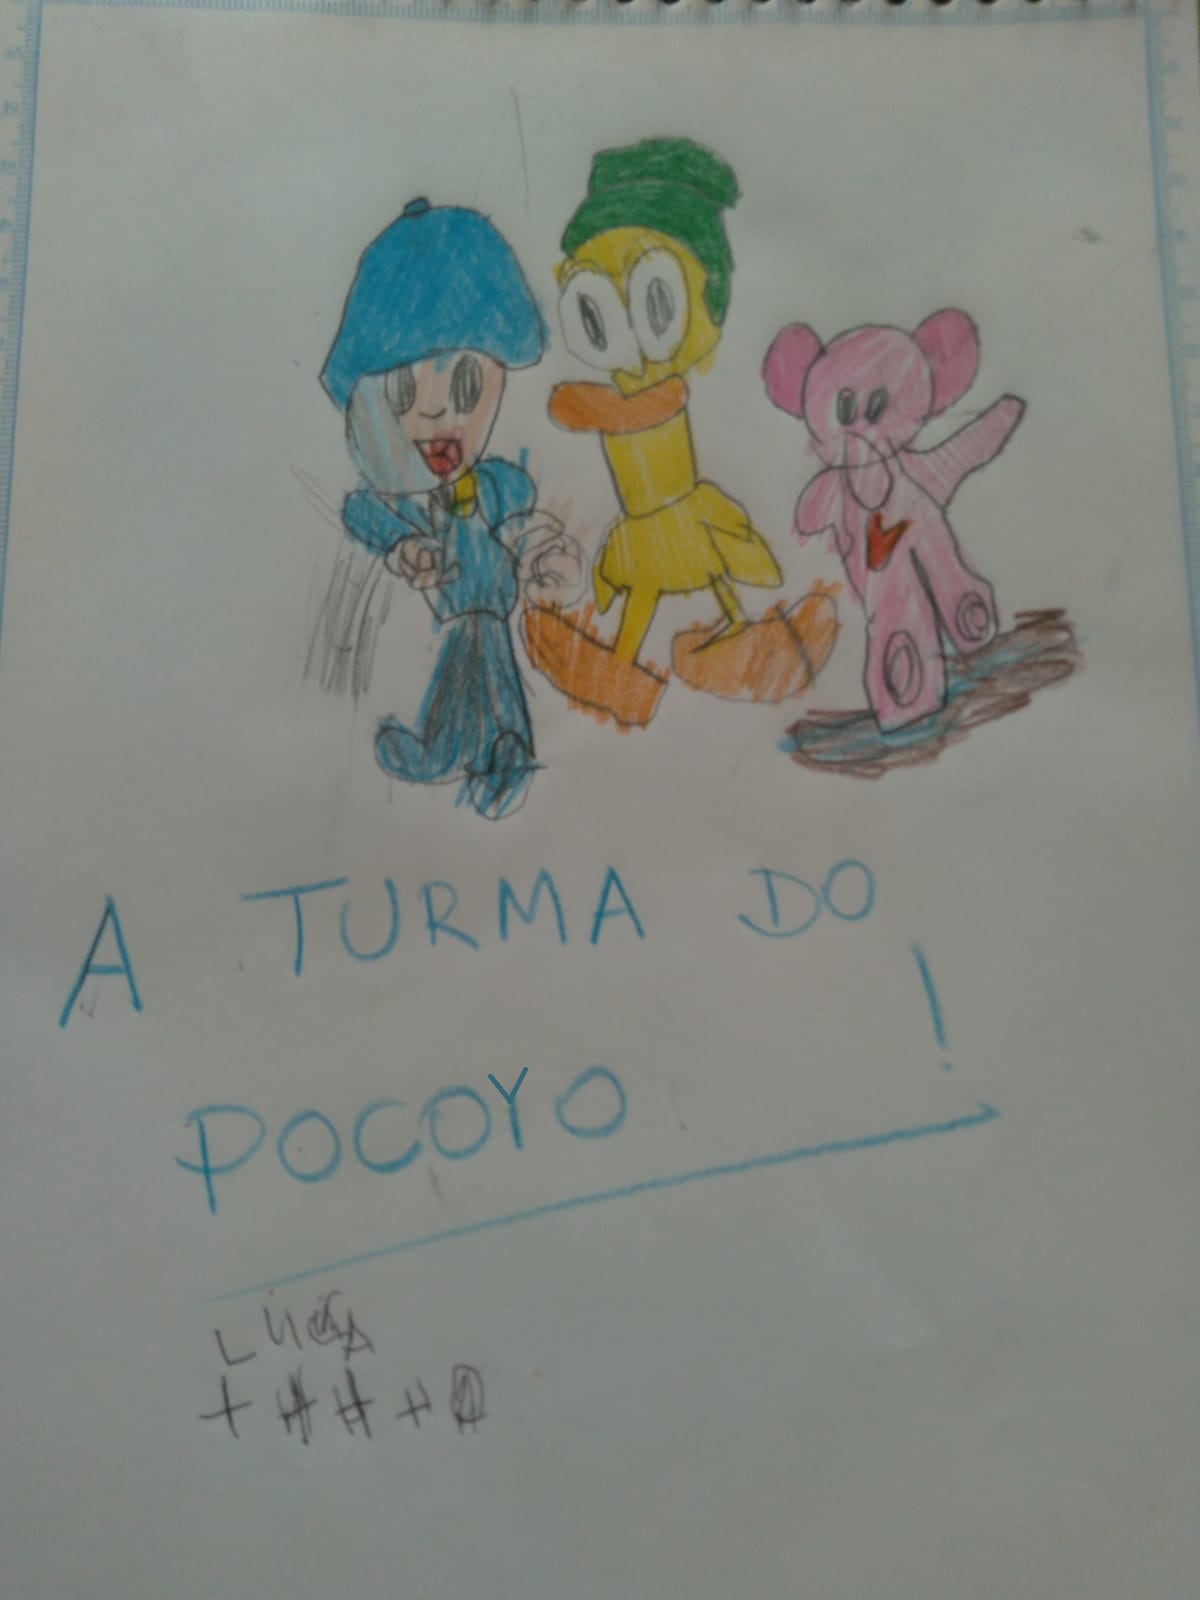 A TURMA DO
POCOYO !
LUCA